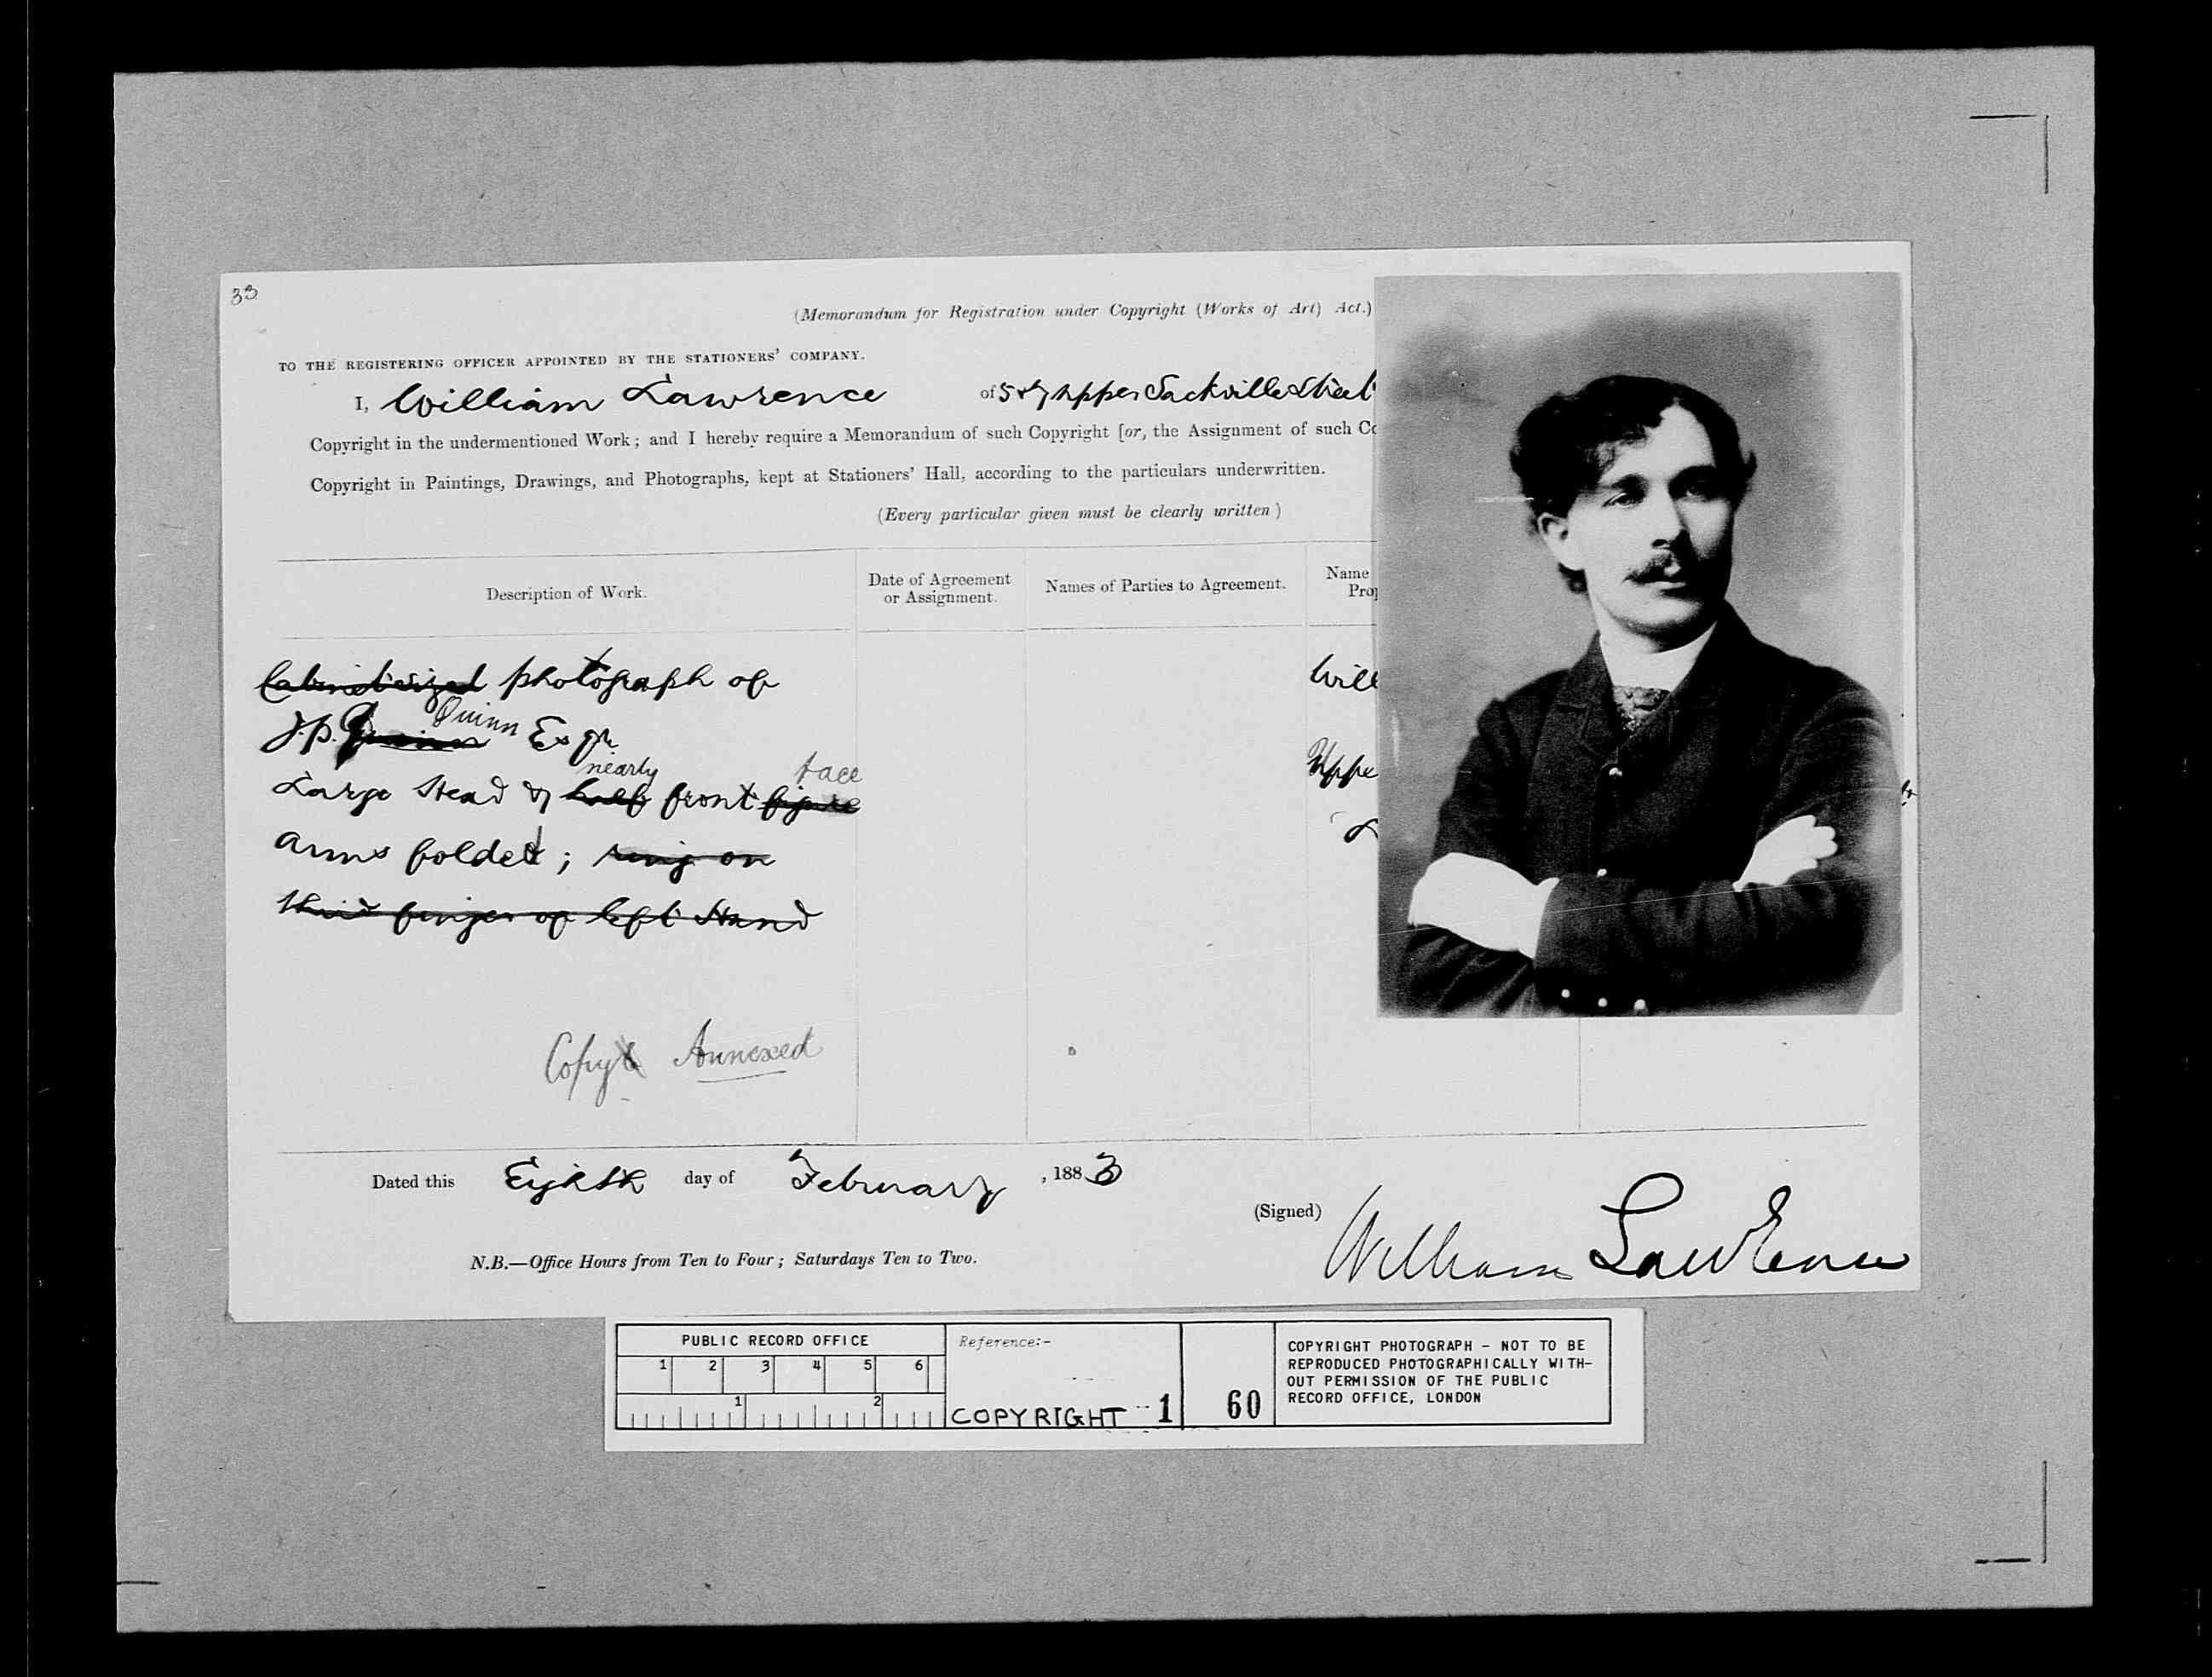 33
(Memorandum for Registration under Copyright (Works of Art) Act.)
TO THE REGISTERING OFFICER APPOINTED BY THE STATIONERS' COMPANY.
I, William Lawrence of 5 & 7 Upper Sackville Street
Copyright in the undermentioned Work; and I hereby require a Memorandum of such Copyright [or, the Assignment of such Co
Copyright in Paintings, Drawings, and Photographs, kept at Stationers' Hall, according to the particulars underwritten.
(Every particular given must be clearly written)
Description of Work.
Date of Agreement
or Assignment.
Names of Parties to Agreement.
Name
Prop
Cabinet sized photograph of
Will
Quinn
J.P. Quinn Esqr
nearly face
Uppe
Large Head & half front figure
arms folded; ring on
third finger of left Hand
Copy Annexed
Dated this Eighth day of February, 1883
(Signed) William Lawrence
N.B.—Office Hours from Ten to Four; Saturdays Ten to Two.
PUBLIC RECORD OFFICE
1 2 3 4 5 6
1 2
Reference:-
COPYRIGHT 1
60
COPYRIGHT PHOTOGRAPH - NOT TO BE
REPRODUCED PHOTOGRAPHICALLY WITH-
OUT PERMISSION OF THE PUBLIC
RECORD OFFICE, LONDON